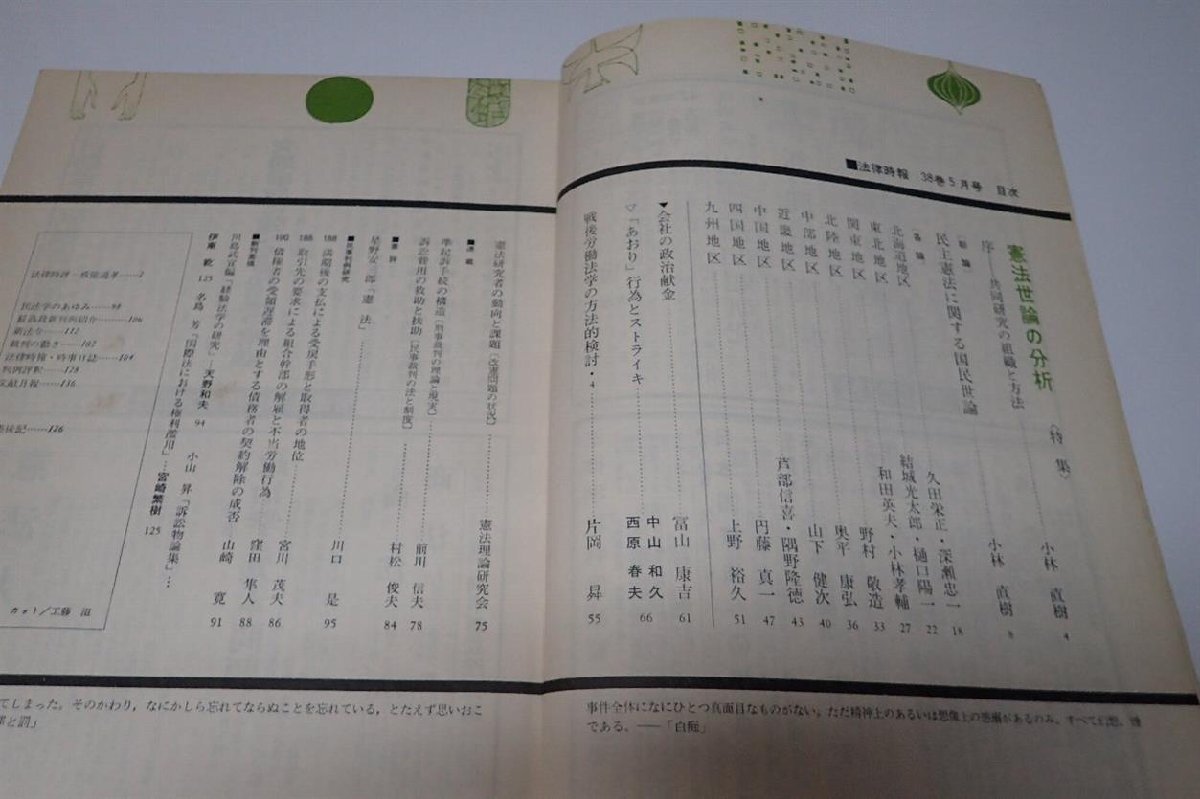 ■法律時報 38巻5月号 目次
憲法世論の分析 〈特集〉
序――共同研究の組織と方法 小林 直樹 4
■総論
民主憲法に関する国民世論 小林 直樹 8
■各論
北海道地区 久田栄正・深瀬忠一 18
東北地区 結城光太郎・樋口陽一 22
関東地区 和田英夫・小林孝輔 27
北陸地区 野村 敬造 33
中部地区 奥平 康弘 36
近畿地区 山下 健次 40
中国地区 芦部信喜・隅野隆徳 43
四国地区 円藤 真一 47
九州地区 上野 裕久 51
▼会社の政治献金 富山 康吉 61
▽「あおり」行為とストライキ 中山 和久 西原 春夫 66
戦後労働法学の方法的検討・4 片岡 曻 55
憲法研究者の動向と課題〔改憲問題の状況〕 憲法理論研究会 75
■連載
準起訴手続の構造〔刑事裁判の理論と現実〕 前川 信夫 78
訴訟費用の救助と扶助〔民事裁判の法と制度〕 村松 俊夫 84
■書評
星野安三郎「憲法」 川口 是 95
■民事判例研究
188 満期後の支払による受戻手形と取得者の地位 宮川 茂夫 86
189 取引先の要求による組合幹部の解雇と不当労働行為 窪田 隼人 88
190 債権者の受領遅滞を理由とする債務者の契約解除の成否 山崎 寛 91
■新刊寄稿
川島武宜編「経験法学の研究」…天野和夫 94 小山 昇「訴訟物論集」…
伊東 乾 125 名島 芳「国際法における権利濫用」…宮崎繁樹 125
法律時評
民法学のあゆみ……98
最高裁新判例紹介……106
新法令……112
裁判の動き……102
法律時報・時事日誌……104
判例評釈……128
文献月報……136
集後記……126
カット／工藤
事件全体になにひとつ真面目なものがない。ただ精神上のあるいは想像上の悪癖があるのみ、すべて幻想、
である。――「白痴」
てしまった。そのかわり，なにかしら忘れてならぬことを忘れている，とたえず思いおこ
罪と罰」